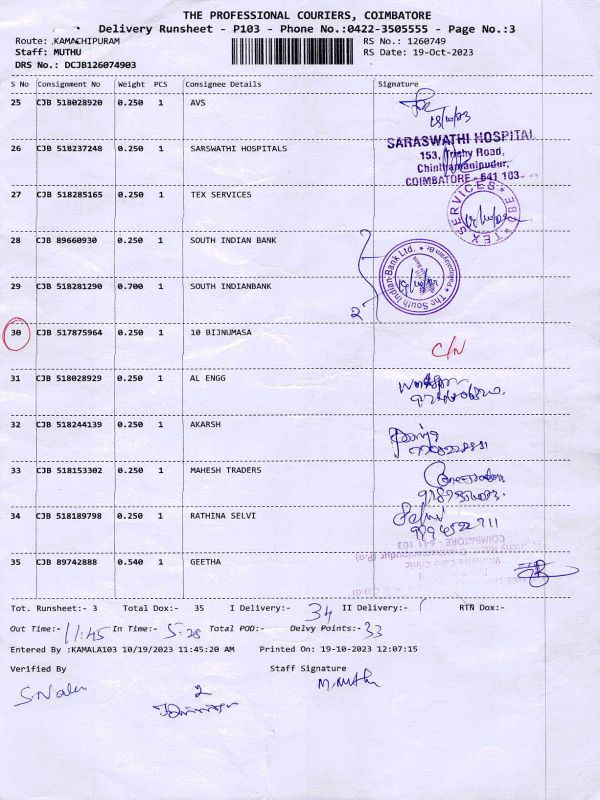 THE PROFESSIONAL COURIERS, COIMBATORE
Delivery Runsheet - P103 - Phone No.:0422-3505555 - Page No.:3
Route: KAMACHIPURAM RS No.: 1260749
Staff: MUTHU RS Date: 19-Oct-2023
DRS No.: DCJB126074903
S No Consignment No Weight PCS Consignee Details Signature
25 CJB 518028920 0.250 1 AVS
26 CJB 518237248 0.250 1 SARSWATHI HOSPITALS
SARASWATHI HOSPITAL
153, Trichy Road,
Chinthamanipudur,
COIMBATORE - 641 103
27 CJB 518285165 0.250 1 TEX SERVICES
TEX SERVICES * CBE *
28 CJB 89660930 0.250 1 SOUTH INDIAN BANK
The South Indian Bank Ltd.
29 CJB 518281290 0.700 1 SOUTH INDIANBANK
2
30 CJB 517875964 0.250 1 10 BIJNUMASA C/N
31 CJB 518028929 0.250 1 AL ENGG
32 CJB 518244139 0.250 1 AKARSH
33 CJB 518153302 0.250 1 MAHESH TRADERS
34 CJB 518189798 0.250 1 RATHINA SELVI Selvi
COIMBATORE - 641 103
35 CJB 89742888 0.540 1 GEETHA
Tot. Runsheet:- 3 Total Dox:- 35 I Delivery:- 34 II Delivery:- RTN Dox:-
Out Time:- 11:45 In Time:- 5:28 Total POD:- Delvy Points:- 33
Entered By :KAMALA103 10/19/2023 11:45:20 AM Printed On: 19-10-2023 12:07:15
Verified By Staff Signature
2 M. Muthu